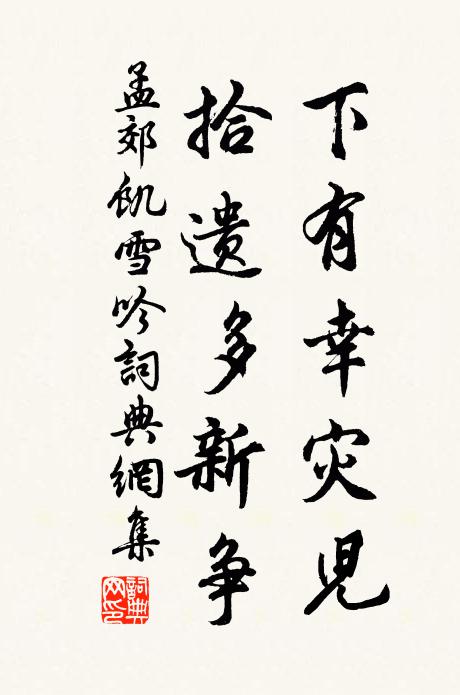 下有幸灾兒
拾遺多新争
孟郊飢雪吟詞典網集
詞典网印